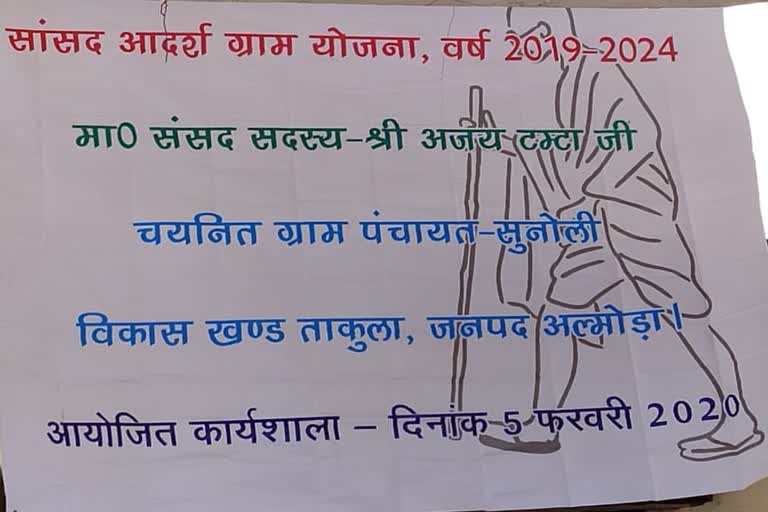 सांसद आदर्श ग्राम योजना, वर्ष 2019-2024
मा0 संसद सदस्य-श्री अजय टम्टा जी
चयनित ग्राम पंचायत-सुनोली
विकास खण्ड ताकुला, जनपद अल्मोड़ा।
आयोजित कार्यशाला – दिनांक 5 फरवरी 2020